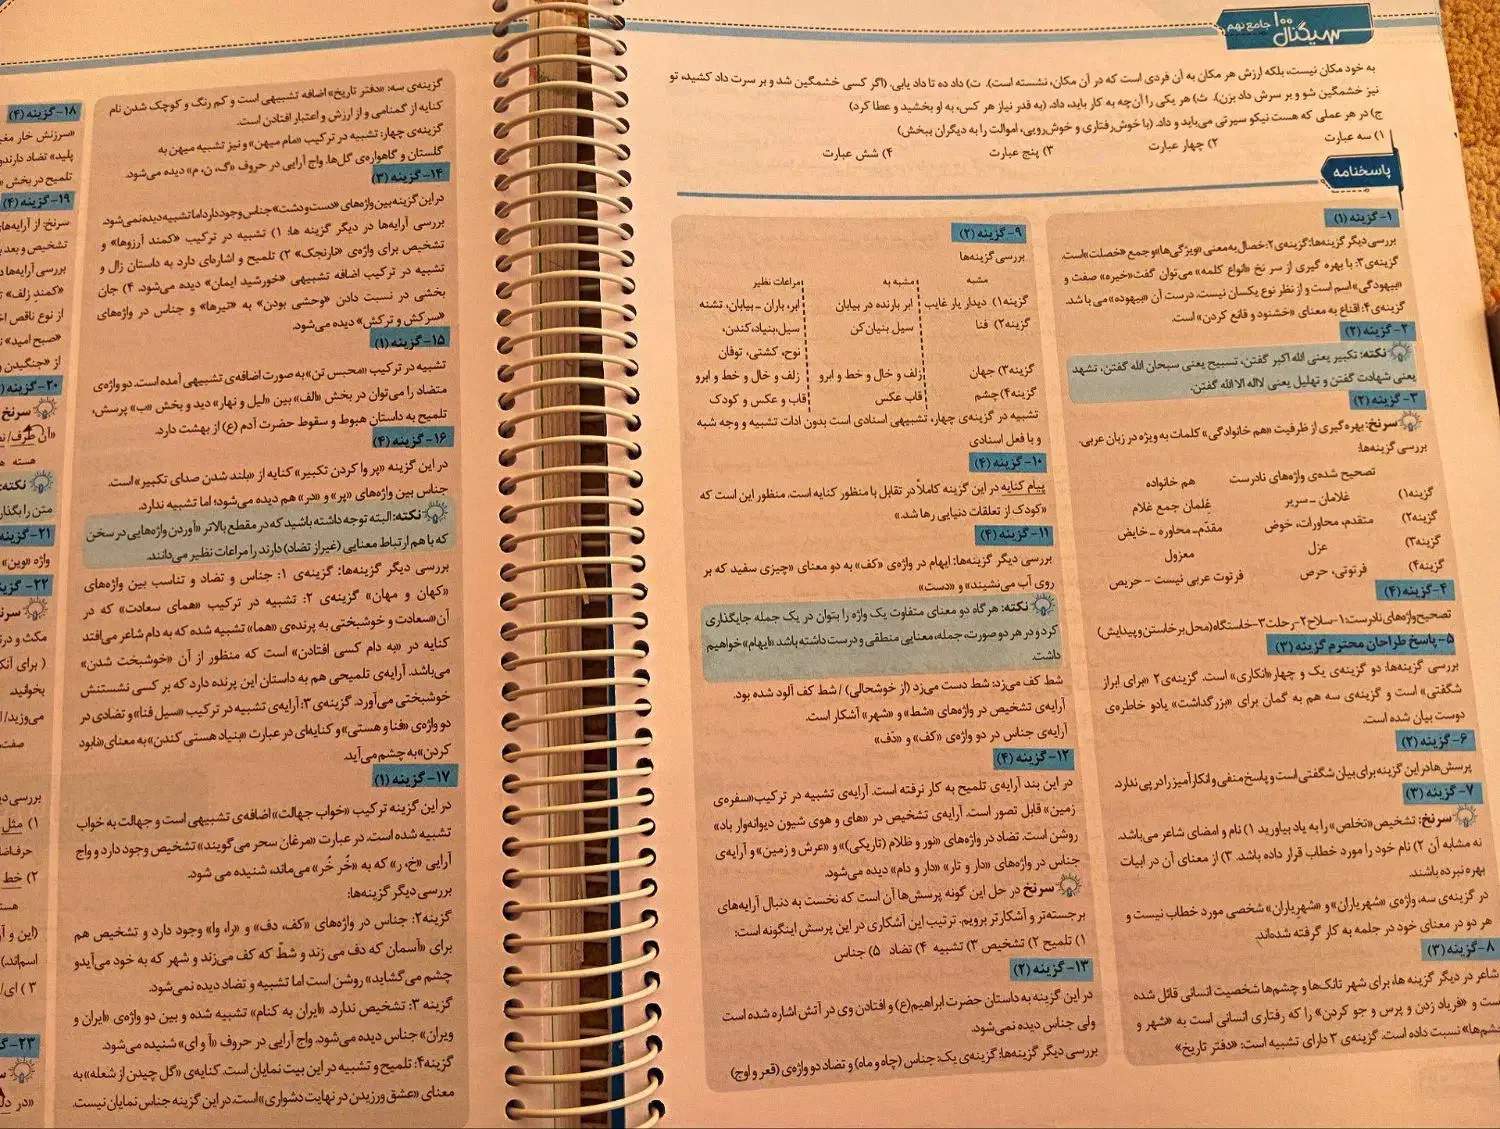 سیگنال ۱۰۰ جامع نهم
به خود مکان نیست، بلکه ارزش هر مکان به آن فردی است که در آن مکان، نشسته است). ت) داد ده تا داد یابی. (اگر کسی خشمگین شد و بر سرت داد کشید، تو
نیز خشمگین شو و بر سرش داد بزن). ث) هر یکی را آن‌چه به کار باید، داد. (به قدر نیاز هر کس، به او بخشید و عطا کرد)
ج) در هر عملی که هست نیکو سیرتی می‌باید و داد. (با خوش‌رفتاری و خوش‌رویی، اموالت را به دیگران ببخش)
۱) سه عبارت ۲) چهار عبارت ۳) پنج عبارت ۴) شش عبارت
پاسخنامه
۱- گزینه (۱)
بررسی دیگر گزینه‌ها: گزینه‌ی ۲: خصال به معنی «ویژگی‌ها» و جمع «خصلت» است.
گزینه‌ی ۳: با بهره گیری از سر نخ «انواع کلمه» می‌توان گفت «خیره» صفت و
«بیهودگی» اسم است و از نظر نوع یکسان نیست. درست آن «بیهوده» می با شد.
گزینه‌ی ۴: اقناع به معنای «خشنود و قانع کردن» است.
۲- گزینه (۲)
نکته: تکبیر یعنی الله اکبر گفتن، تسبیح یعنی سبحان الله گفتن، تشهد
یعنی شهادت گفتن و تهلیل یعنی لااله الا الله گفتن.
۳- گزینه (۲)
سرنخ: بهره‌گیری از ظرفیت «هم خانوادگی» کلمات به ویژه در زبان عربی.
بررسی گزینه‌ها:
تصحیح شده‌ی واژه‌های نادرست هم خانواده
گزینه۱) غلامان – سریر غِلمان جمع غلام
گزینه۲) متقدم، محاورات، خوض مقدّم- محاوره – خایض
گزینه۳) عزل معزول
گزینه۴) فرتوتی، حرص فرتوت عربی نیست – حریص
۴- گزینه (۴)
تصحیح واژه‌های نادرست: ۱- سلاح ۲- رحلت ۳- خاستگاه (محل برخاستن و پیدایش)
۵- پاسخ طراحان محترم گزینه (۳)
بررسی گزینه‌ها: دو گزینه‌ی یک و چهار «انکاری» است. گزینه‌ی ۲ «برای ابراز
شگفتی» است و گزینه‌ی سه هم به گمان برای «بزرگداشت» یادو خاطره‌ی
دوست بیان شده است.
۶- گزینه (۲)
پرسش‌ها در این گزینه برای بیان شگفتی است و پاسخ منفی و انکارآمیز را در پی ندارد.
۷- گزینه (۳)
سرنخ: تشخیص «تخلص» را به یاد بیاورید ۱) نام و امضای شاعر می‌باشد.
نه مشابه آن ۲) نام خود را مورد خطاب قرار داده باشد. ۳) از معنای آن در ابیات
بهره نبرده باشند.
در گزینه‌ی سه، واژه‌ی «شهریاران» و «شهرِیاران» شخصی مورد خطاب نیست و
هر دو در معنای خود در جلمه به کار گرفته شده‌اند.
۸- گزینه (۳)
شاعر در دیگر گزینه ها، برای شهر تانک‌ها و چشم‌ها شخصیت انسانی قائل شده
است و «فریاد زدن و پرس و جو کردن» را که رفتاری انسانی است به «شهر و
چشم‌ها» نسبت داده است. گزینه‌ی ۳ دارای تشبیه است: «دفتر تاریخ»
۹- گزینه (۲)
بررسی گزینه‌ها
مشبه مشبه به مراعات نظیر
گزینه۱) دیدار یار غایب ابر بارنده در بیابان ابر، باران – بیابان، تشنه
گزینه۲) فنا سیل بنیان‌کن سیل، بنیاد، کندن،
نوح، کشتی، توفان
گزینه۳) جهان زلف و خال و خط و ابرو زلف و خال و خط و ابرو
گزینه۴) چشم قاب عکس قاب و عکس و کودک
تشبیه در گزینه‌ی چهار، تشبیهی اسنادی است بدون ادات تشبیه و وجه شبه
و با فعل اسنادی
۱۰- گزینه (۴)
پیام کنایه در این گزینه کاملاً در تقابل با منظور کنایه است. منظور این است که
«کودک از تعلقات دنیایی رها شد.»
۱۱- گزینه (۴)
بررسی دیگر گزینه‌ها: ایهام در واژه‌ی «کف» به دو معنای «چیزی سفید که بر
روی آب می‌نشیند» و «دست»
نکته: هرگاه دو معنای متفاوت یک واژه را بتوان در یک جمله جایگذاری
کرد و در هر دو صورت، جمله، معنایی منطقی و درست داشته باشد «ایهام» خواهیم
داشت.
شط کف می‌زد: شط دست می‌زد (از خوشحالی) / شط کف آلود شده بود.
آرایه‌ی تشخیص در واژه‌های «شط» و «شهر» آشکار است.
آرایه‌ی جناس در دو واژه‌ی «کف» و «دَف»
۱۲- گزینه (۴)
در این بند آرایه‌ی تلمیح به کار نرفته است. آرایه‌ی تشبیه در ترکیب «سفره‌ی
زمین» قابل تصور است. آرایه‌ی تشخیص در «های و هوی شیون دیوانه‌وار باد»
روشن است. تضاد در واژه‌های «نور و ظلام (تاریکی)» و «عرش و زمین» و آرایه‌ی
جناس در واژه‌های «دار و تار» «دار و دام» دیده می‌شود.
سرنخ در حل این گونه پرسش‌ها آن است که نخست به دنبال آرایه‌های
برجسته‌تر و آشکارتر برویم. ترتیب این آشکاری در این پرسش اینگونه است:
۱) تلمیح ۲) تشخیص ۳) تشبیه ۴) تضاد ۵) جناس
۱۳- گزینه (۲)
در این گزینه به داستان حضرت ابراهیم(ع) و افتادن وی در آتش اشاره شده است
ولی جناس دیده نمی‌شود.
بررسی دیگر گزینه‌ها: گزینه‌ی یک: جناس (چاه و ماه) و تضاد دو واژه‌ی (قعر و اوج)
گزینه‌ی سه: «دفتر تاریخ» اضافه تشبیهی است و کم رنگ و کوچک شدن نام
کنایه از گمنامی و از ارزش و اعتبار افتادن است.
گزینه‌ی چهار: تشبیه در ترکیب «مام میهن» و نیز تشبیه میهن به
گلستان و گاهواره‌ی گل‌ها. واج آرایی در حروف «گ، ن، م» دیده می‌شود.
۱۴- گزینه (۳)
در این گزینه بین واژه‌های «دست و دشت» جناس وجود دارد اما تشبیه دیده نمی‌شود.
بررسی آرایه‌ها در دیگر گزینه ها: ۱) تشبیه در ترکیب «کمند آرزوها» و
تشخیص برای واژه‌ی «نارنجک» ۲) تلمیح و اشاره‌ای دارد به داستان زال و
تشبیه در ترکیب اضافه تشبیهی «خورشید ایمان» دیده می‌شود. ۴) جان
بخشی در نسبت دادن «وحشی بودن» به «تیرها» و جناس در واژه‌های
«سرکش و ترکش» دیده می‌شود.
۱۵- گزینه (۱)
تشبیه در ترکیب «محبس تن» به صورت اضافه‌ی تشبیهی آمده است. دو واژه‌ی
متضاد را می‌توان در بخش «الف» بین «لیل و نهار» دید و بخش «ب» پرسش،
تلمیح به داستان هبوط و سقوط حضرت آدم (ع) از بهشت دارد.
۱۶- گزینه (۴)
در این گزینه «پر وا کردن تکبیر» کنایه از «بلند شدن صدای تکبیر» است.
جناس بین واژه‌های «پر» و «در» هم دیده می‌شود؛ اما تشبیه ندارد.
نکته: البته توجه داشته باشید که در مقطع بالاتر «آوردن واژه‌هایی در سخن
که با هم ارتباط معنایی (غیر از تضاد) دارند را مراعات نظیر می‌دانند.
بررسی دیگر گزینه‌ها: گزینه‌ی ۱: جناس و تضاد و تناسب بین واژه‌های
«کهان و مهان» گزینه‌ی ۲: تشبیه در ترکیب «همای سعادت» که در
آن «سعادت و خوشبختی به پرنده‌ی «هما» تشبیه شده که به دام شاعر می‌افتد
کنایه در «به دام کسی افتادن» است که منظور از آن «خوشبخت شدن»
می‌باشد. آرایه‌ی تلمیحی هم به داستان این پرنده دارد که بر کسی نشستنش
خوشبختی می‌آورد. گزینه‌ی ۳: آرایه‌ی تشبیه در ترکیب «سیل فنا» و تضادی در
دو واژه‌ی «فنا و هستی» و کنایه‌ای در عبارت «بنیاد هستی کندن» به معنای «نابود
کردن» به چشم می‌آید.
۱۷- گزینه (۱)
در این گزینه ترکیب «خواب جهالت» اضافه‌ی تشبیهی است و جهالت به خواب
تشبیه شده است. در عبارت «مرغان سحر می‌گویند» تشخیص وجود دارد و واج
آرایی «خ، ر» که به «خُر خُر» می‌ماند، شنیده می شود.
بررسی دیگر گزینه‌ها:
گزینه۲: جناس در واژه‌های «کف، دف» و «را، وا» وجود دارد و تشخیص هم
برای «آسمان که دف می زند و شط که کف می‌زند و شهر که به خود می‌آید و
چشم می‌گشاید» روشن است اما تشبیه و تضاد دیده نمی‌شود.
گزینه ۳: تشخیص ندارد. «ایران به کنام» تشبیه شده و بین دو واژه‌ی «ایران و
ویران» جناس دیده می‌شود. واج آرایی در حروف «آ و ای» شنیده می‌شود.
گزینه۴: تلمیح و تشبیه در این بیت نمایان است. کنایه‌ی «گل چیدن از شعله» به
معنای «عشق ورزیدن در نهایت دشواری» است. در این گزینه جناس نمایان نیست.
۱۸- گزینه (۴)
«سرزنش خار
پلید» تضاد دارند
تلمیح در بخش
۱۹- گزینه (۴)
سرنخ: از آرایه‌های
تشخیص و بعد
بررسی آرایه‌ها
«کمند زلف»
از نوع ناقص
«صبح امید»
از «جنگیدن
۲۰- گزینه
سرنخ
«آن طرف/
هسته
نکته:
متن را بگذار
۲۱- گزینه
واژه «وین»
۲۲- گزینه
سرنخ
مکث و درنگ
( برای
بخوانید.
می‌وزید/
صفت
بررسی
۱) مثل
حرف‌اضافه
۲) خط
هسته
(این و آن
اسم‌اند)
۳ ) ای/
۲۳- گزینه
«در